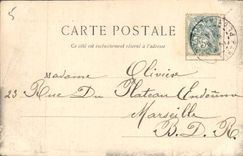 5
CARTE POSTALE
Ce côté est exclusivement réservé à l'adresse
Madame Olivier
23 Rue Du Plateau Endoume
Marseille
B. D. R.